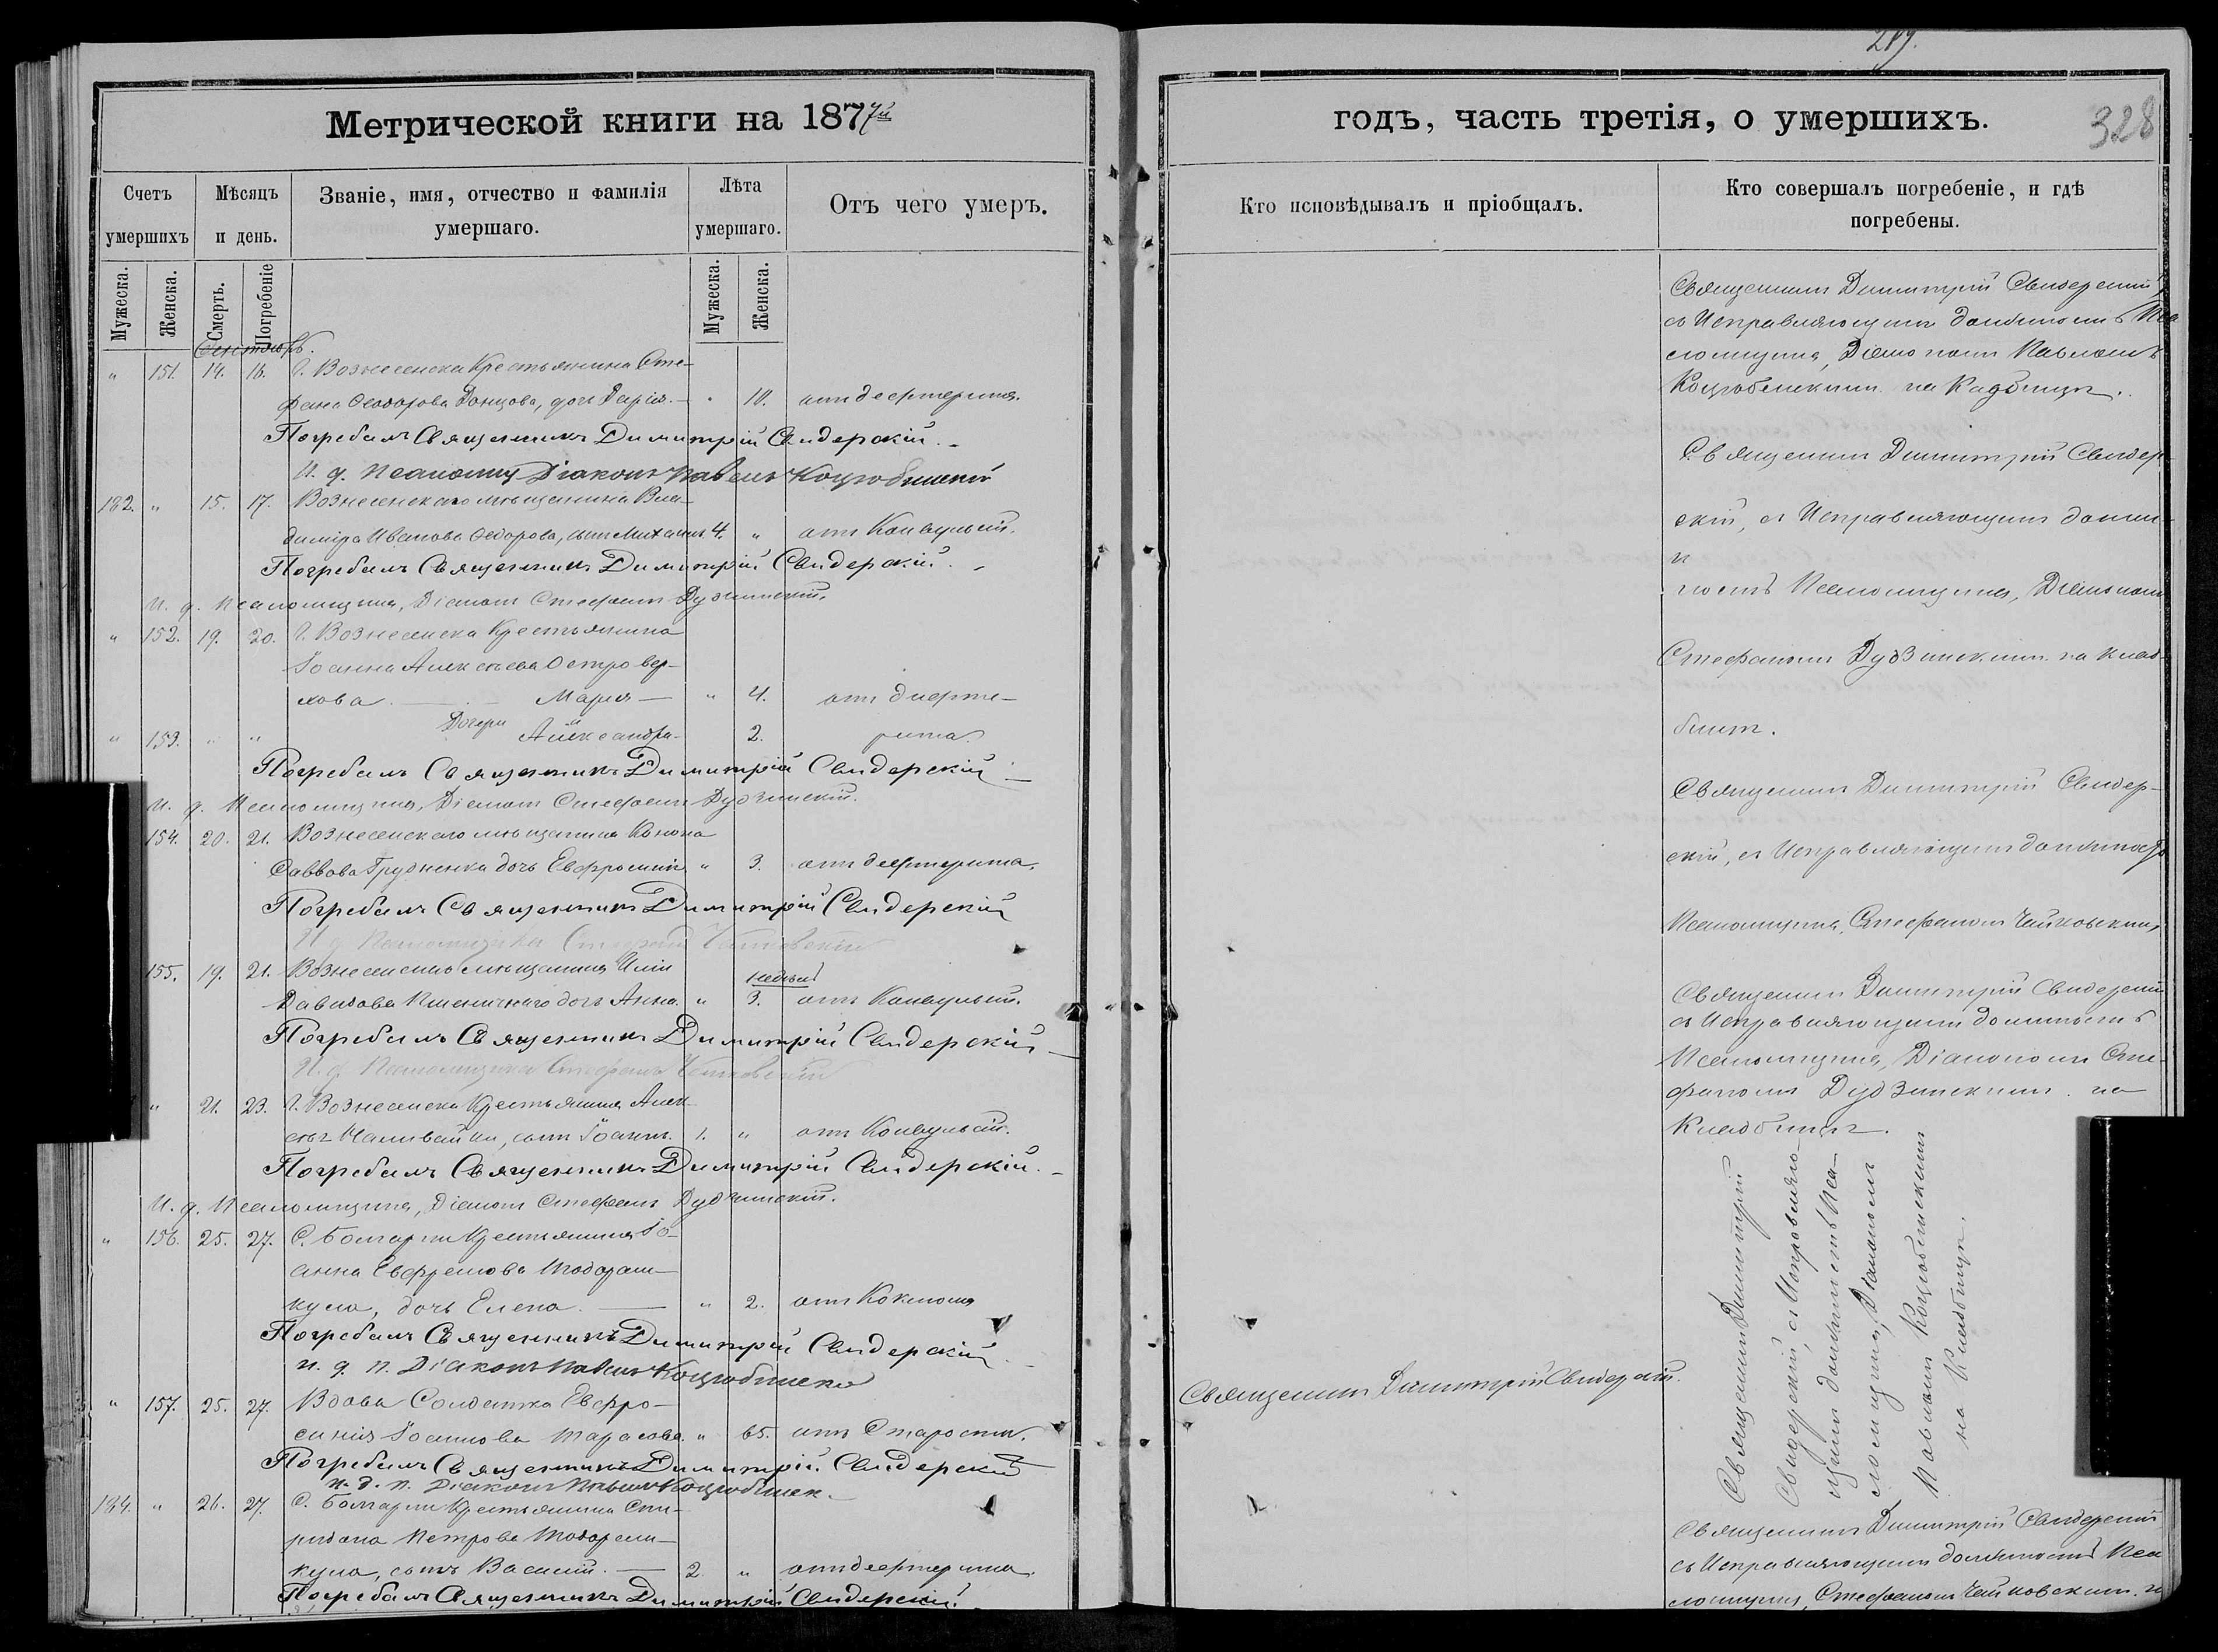 Метрической книги на 1877й
Счетъ умершихъ
Мѣсяцъ и день.
Званіе, имя, отчество и фамилія умершаго.
Лѣта умершаго.
Отъ чего умеръ.
Мужеска.
Женска.
Смерть.
Погребеніе
Мужеска.
Женска.
Сентябрь.
" 151. 14. 16. Г. Вознесенска Крестьянина Сте-
фана Ѳеодорова Донцова, доч Дарія. " 10. отъ дефтерита.
Погребалъ Священникъ Димитрій Свидерскій.
И. д. Псаломщ. Діаконъ Павелъ Коцюбинскій
182. " 15. 17. Вознесенскаго мѣщанина Вла-
диміра Иванова Ѳедорова, сынъ Михаилъ 4. " отъ Конвульсій.
Погребалъ Священникъ Димитрій Свидерскій.
И. д. Псаломщика, Діаконъ Стефанъ Дудзинскій.
" 152. 19. 20. Г. Вознесенска Крестьянина
Іоанна Алексѣева Островер-
хова Мария " 4. отъ дифте-
Дочери и
" 153. " " Александра 2. рита.
Погребалъ Священникъ Димитрій Свидерскій
И. д. Псаломщика, Діаконъ Стефанъ Дудзинскій.
154. 20. 21. Вознесенскаго мѣщанина Конона
Саввова Грудненка дочь Евфросинія " 3. отъ дефтерита.
Погребалъ Священникъ Димитрій Свидерскій
И. д. Псаломщика Стефанъ Чайковскій
155. 19. 21. Вознесенскаго мѣщанина Иліи
недѣли
Давидова Пшеничнаго дочь Анна. " 3. отъ Конвульсій.
Погребалъ Священникъ Димитрій Свидерскій
И. д. Псаломщика Стефанъ Чайковскій
" 21. 23. Г. Вознесенска Крестьянина Алек-
сѣя Наливайки, сынъ Іоаннъ. 1. " отъ Конвульсій.
Погребалъ Священникъ Димитрій Свидерскій.
И. д. Псаломщика, Діаконъ Стефанъ Дудзинскій.
" 156. 25. 27. С. Болгарки Крестьянина Іо-
анна Евфремова Тодораш-
кула, дочь Елена. " 2. отъ Коклюша
Погребалъ Священникъ Димитрій Свидерскій
и. д. п. Діаконъ Павелъ Коцюбинск
" 157. 25. 27. Вдова Солдатка Евфро-
синія Іоаннова Тарасова. " 65. отъ Старости.
Погребалъ Священникъ Димитрій Свидерскій
и. д. п. Діаконъ Павелъ Коцюбинск.
184. " 26. 27. С. Болгарки Крестьянина Спи-
ридона Петрова
кула, сынъ Василій. 2. " отъ дефтерита.
Погребалъ Священникъ Димитрій Свидерскій.
годъ, часть третія, о умершихъ.
328
Кто исповѣдывалъ и пріобщалъ.
Кто совершалъ погребеніе, и гдѣ погребены.
Священникъ Димитрій Свидерскій,
съ Исправляющимъ должность Пса
ломщика, Діакономъ Павломъ
Коцюбинскимъ на Кладбищѣ.
Священникъ Димитрій Свидер-
скій, съ Исправляющимъ долж-
ность Псаломщика, Діакономъ
Стефаномъ Дудзинскимъ на клад-
бищѣ.
Священникъ Димитрій Свидер-
скій, съ Исправляющимъ должность
Псаломщика, Стефаномъ Чайковскимъ,
Священникъ Димитрій Свидерскій
съ Исправляющимъ должность
Псаломщика, Діакономъ Сте-
фаномъ Дудзинскимъ на
Кладбищѣ.
Священникъ Димитрій Свидерскій.
Священникъ Димитрій
Свидерскій, съ Исправляю-
щимъ должность Пса-
ломщика, Діакономъ
Павломъ Коцюбинскимъ
на Кладбищѣ.
Священникъ Димитрій Свидерскій
съ Исправляющимъ должность Пса
ломщика, Стефаномъ Чайковскимъ. н